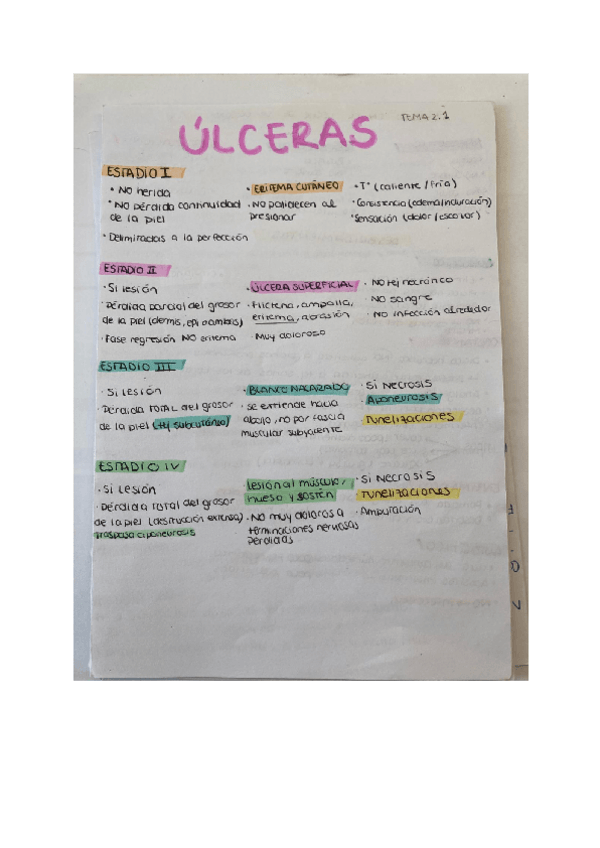 TEMA 2.1
ÚLCERAS
ESTADIO I
· NO herida
· NO pérdida continuidad
de la piel
· Delimitadas a la perfección
· ERITEMA CUTÁNEO
· NO palidecen al
presionar
· Tª (caliente / fría)
· Consistencia (edema/induración)
· Sensación (dolor / escozor)
ESTADIO II
· Sí lesión
· Pérdida parcial del grosor
de la piel (dermis, epi o ambas)
· Fase regresión NO eritema
· ÚLCERA SUPERFICIAL
· Flictena, ampolla,
eritema, abrasión
· Muy doloroso
· NO tej necrótico
· NO sangre
· NO infección alrededor
ESTADIO III
· Sí lesión
· Pérdida TOTAL del grosor
de la piel (tej subcutáneo)
· BLANCO NACARADO
· se extiende hacia
abajo, no por fascia
muscular subyacente
· Sí Necrosis
· Aponeurosis
· Tunelizaciones
ESTADIO IV
· Sí Lesión
· Pérdida total del grosor
de la piel (destrucción extensa)
traspasa aponeurosis
· Lesión al músculo,
hueso y sostén
· NO muy doloros a
terminaciones nerviosas
perdidas
· Sí Necrosis
Tunelizaciones
· Amputación